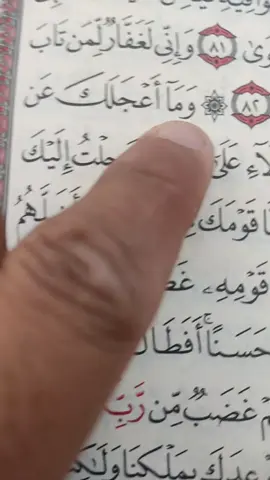 وَىٰ ٨١ وَإِنِّي لَغَفَّارٌ لِّمَن تَابَ
٨٢ ۞ وَمَآ أَعۡجَلَكَ عَن
لَآءِ عَلَىٰ جِلۡتُ إِلَيۡكَ
قَوۡمَكَ
قَوۡمِهِۦ
حَسَنًاۚ أَفَطَالَ
غَضَبٞ مِّن رَّبِّ
بِمَلۡكِنَا وَلَٰكِ